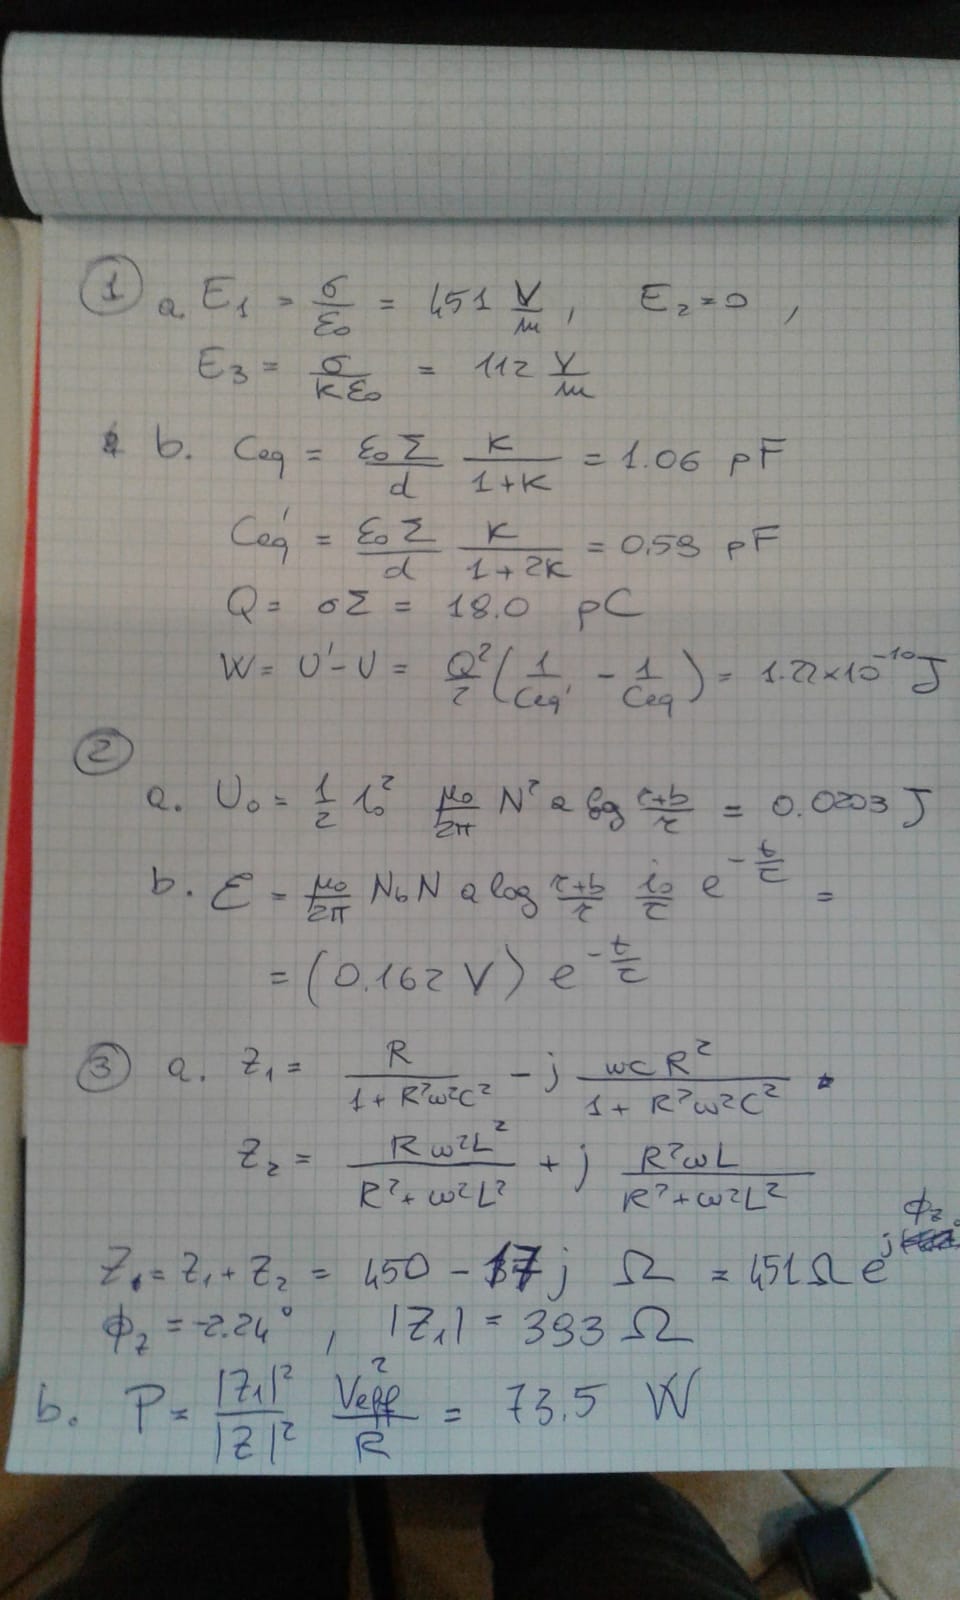 ① a. E₁ = σ/ε₀ = 451 V/m , E₂ = 0 ,
E₃ = σ/(kε₀) = 112 V/m
b. Ceq = (ε₀Σ/d) (k/(1+k)) = 1.06 pF
Ceq' = (ε₀Σ/d) (k/(1+2k)) = 0.59 pF
Q = σΣ = 18.0 pC
W = U' - U = Q²/2 (1/Ceq' - 1/Ceq) = 1.22×10⁻¹⁰ J
②
a. U₀ = 1/2 i₀² μ₀/2π N² a log (r+b)/r = 0.0203 J
b. ℰ = μ₀/2π N_b N a log (r+b)/r i₀/τ e^(-t/τ) =
= (0.162 V) e^(-t/τ)
③ a. Z₁ = R/(1+R²ω²C²) - j ωCR²/(1+R²ω²C²)
Z₂ = Rω²L²/(R²+ω²L²) + j R²ωL/(R²+ω²L²)
Z = Z₁ + Z₂ = 450 - 17j Ω = 451 Ω e^(jϕ_z)
ϕ_z = -2.24° , |Z₁| = 393 Ω
b. P = |Z₁|²/|Z|² Veff²/R = 73.5 W